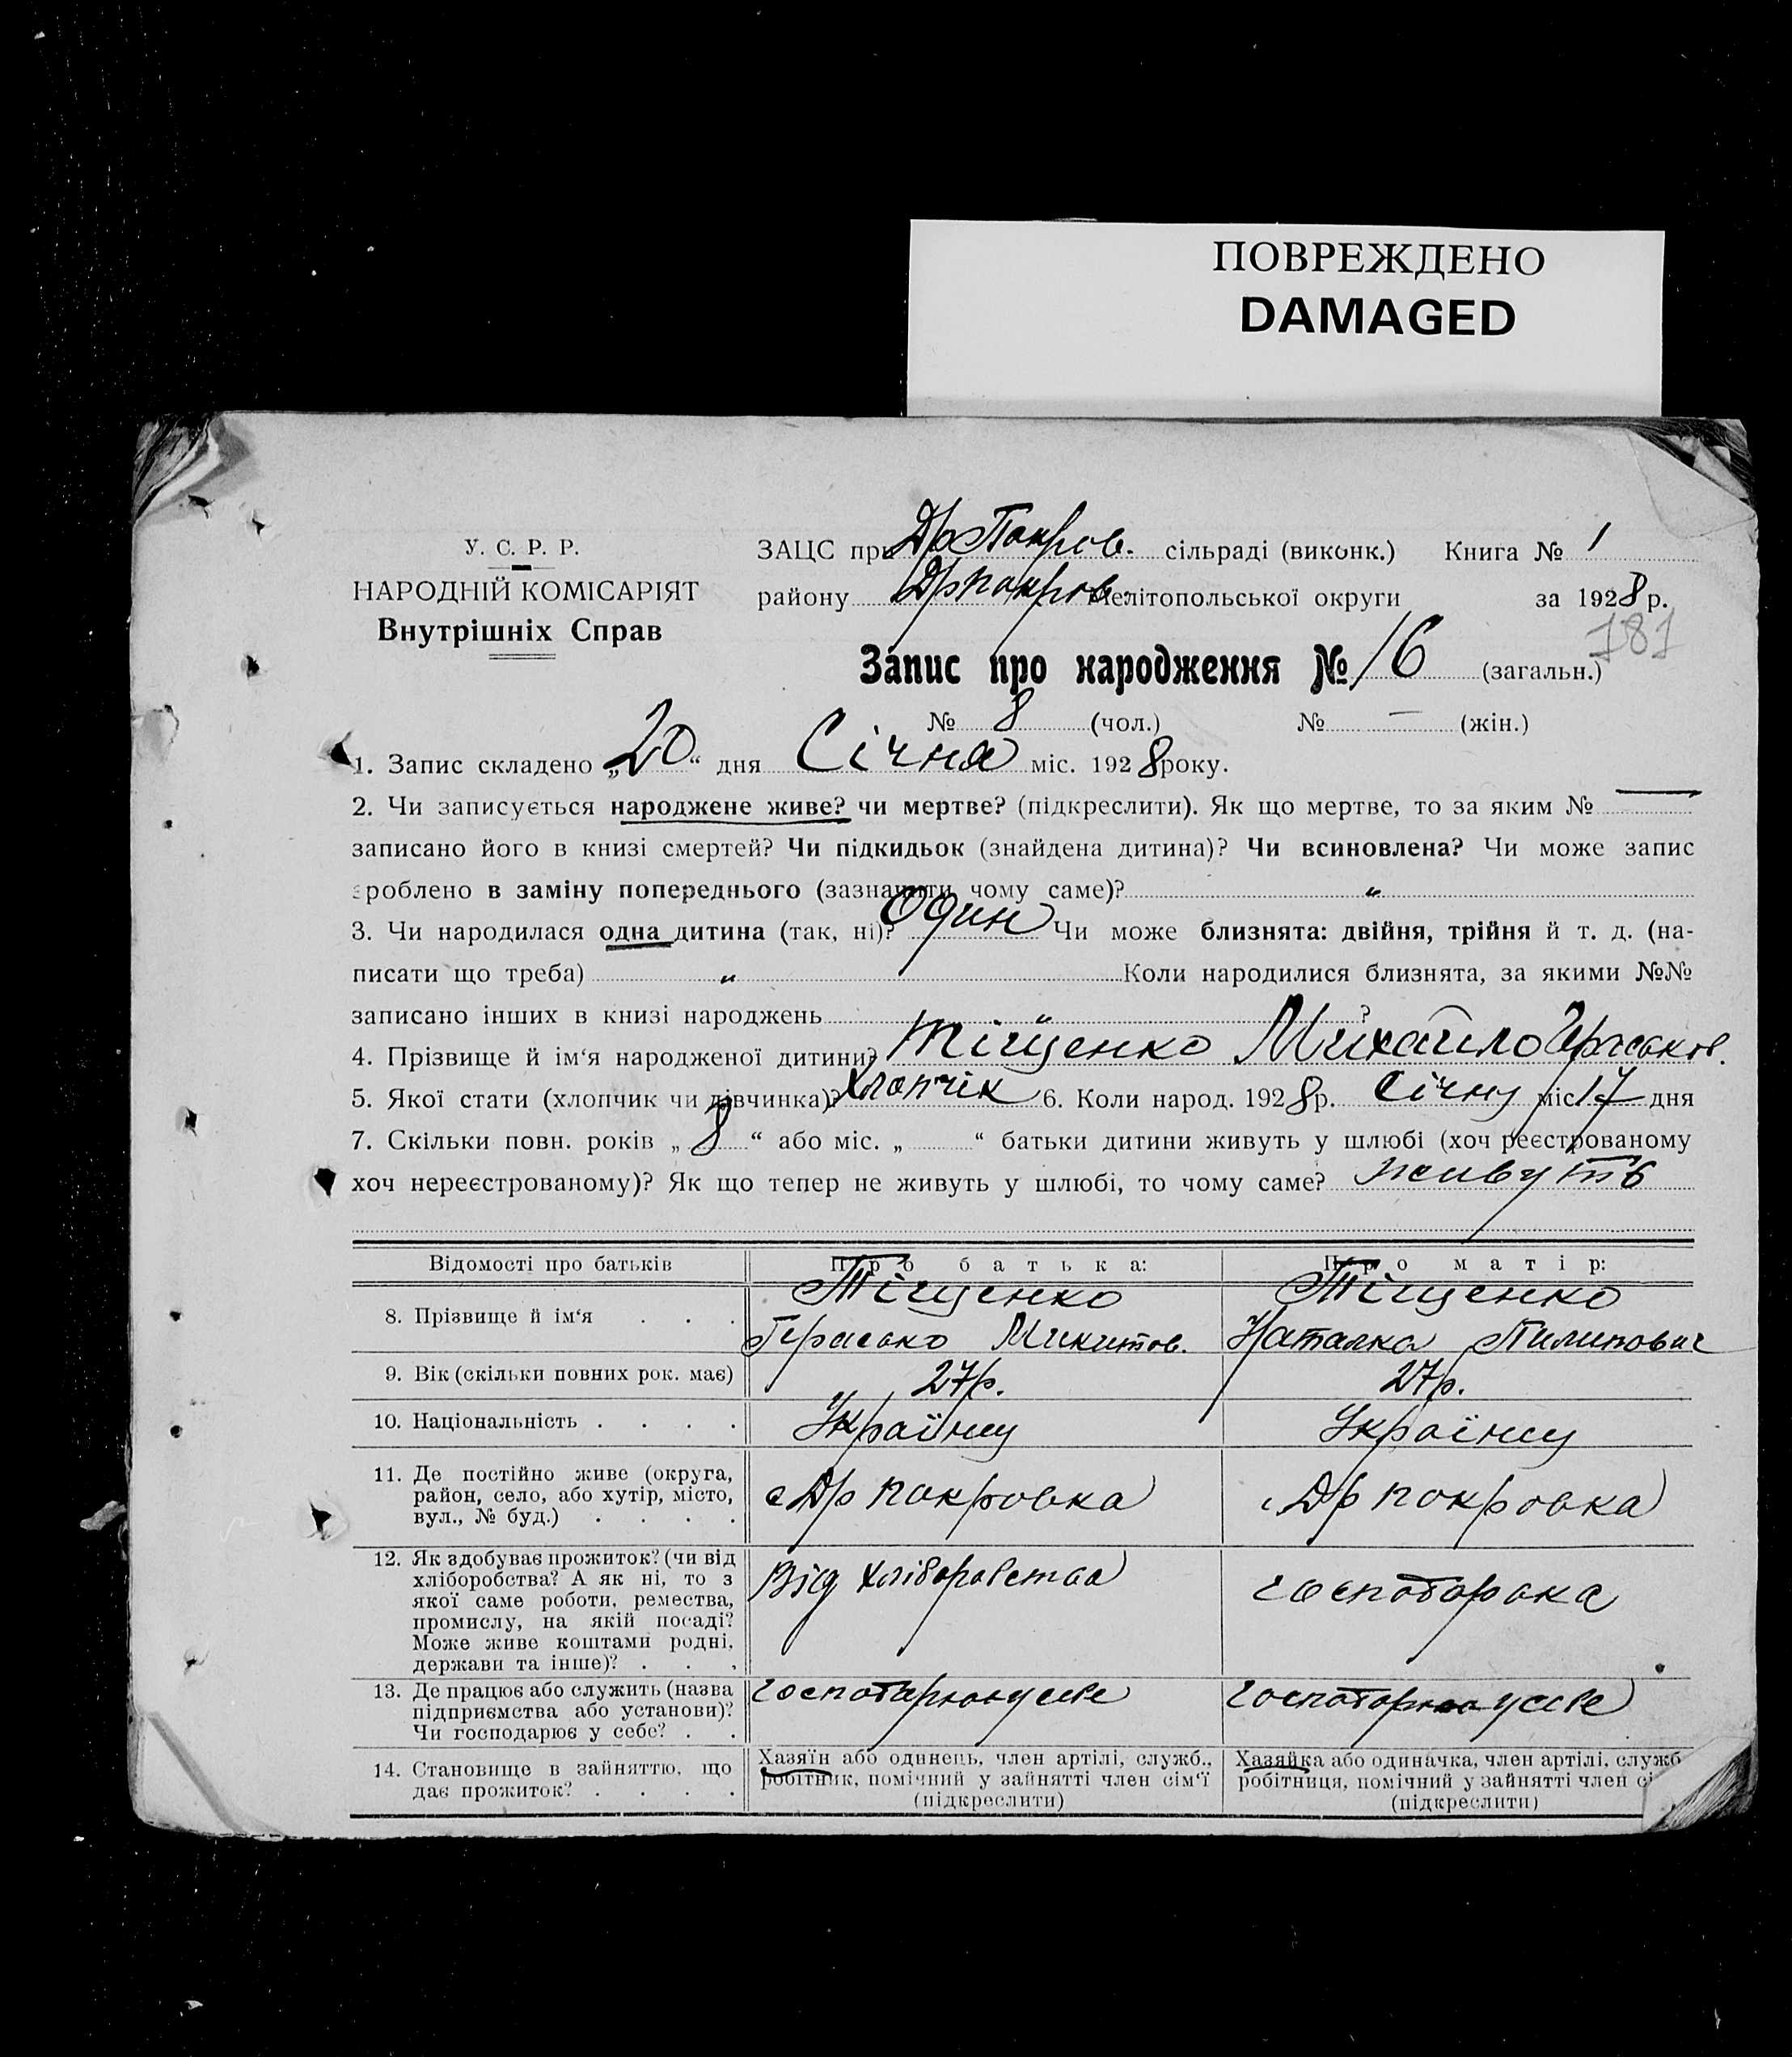 ПОВРЕЖДЕНО
DAMAGED
У. С. Р. Р.
НАРОДНІЙ КОМІСАРІЯТ
Внутрішніх Справ
ЗАЦС при Др Покров. сільраді (виконк.) Книга № 1
району Др покров. Мелітопольської округи за 1928 р.
181
Запис про народження № 16 (загальн.)
№ 8 (чол.) № — (жін.)
1. Запис складено „20“ дня Січня міс. 1928 року.
2. Чи записується народжене живе? чи мертве? (підкреслити). Як що мертве, то за яким № —
записано його в книзі смертей? Чи підкидьок (знайдена дитина)? Чи всиновлена? Чи може запис
зроблено в заміну попереднього (зазначити чому саме)? "
3. Чи народилася одна дитина (так, ні)? Один Чи може близнята: двійня, трійня й т. д. (на-
писати що треба) " Коли народилися близнята, за якими №№
записано інших в книзі народжень " ?
4. Прізвище й ім‘я народженої дитини? Тіщенко Михайло Гераськов.
5. Якої стати (хлопчик чи дівчинка)? хлопчік 6. Коли народ. 1928 р. Січну міс. 17 дня
7. Скільки повн. років „8“ або міс. „ “ батьки дитини живуть у шлюбі (хоч реєстрованому
хоч нереєстрованому)? Як що тепер не живуть у шлюбі, то чому саме? живуть
Відомості про батьків Про батька: Про матір:
8. Прізвище й ім‘я . . . Тіщенко Герасько Микитов. Тіщенко Наталка Пилипович
9. Вік (скільки повних рок. має) 27 р. 27 р.
10. Національність . . . . Українц Українц
11. Де постійно живе (округа,
район, село, або хутір, місто,
вул., № буд.) . . . .
с Др покровка с Др покровка
12. Як здобуває прожиток? (чи від
хліборобства? А як ні, то з
якої саме роботи, ремества,
промислу, на якій посаді?
Може живе коштами родні,
держави та інше)? . . .
Від хліборобства госпотарока
13. Де працює або служить (назва
підприємства або установи)?
Чи господарює у себе? . .
14. Становище в зайняттю, що
дає прожиток? . . . .
Хазяїн або одинець, член артілі, служб.,
робітник, помічний у зайнятті член сім‘ї
(підкреслити)
Хазяйка або одиначка, член артілі, служб
робітниця, помічний у зайнятті член сі
(підкреслити)